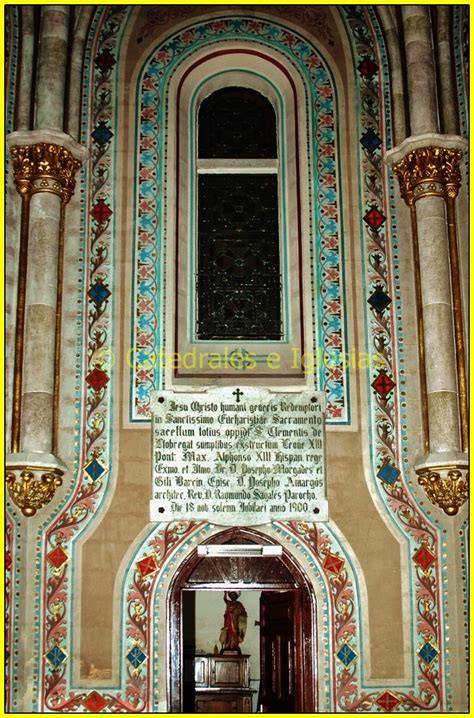 © Catedrales e Iglesias
Iesu Christo humani generis Redemptori
in Sanctissimo Eucharistiae Sacramento
sacellum totius oppidi S. Clementis de
Llobregat sumptibus exstructum Leone XIII
Pont. Max. Alphonso XIII Hispan rege
Exmo. et Illmo. Dr. D. Josepho Morgades et
Gili Barcin. Epis. D. Josepho Amargós
architec. Rev. D. Raimundo Sagalés Parocho,
Die 18 nob. solemn Iubilaei anno 1900.